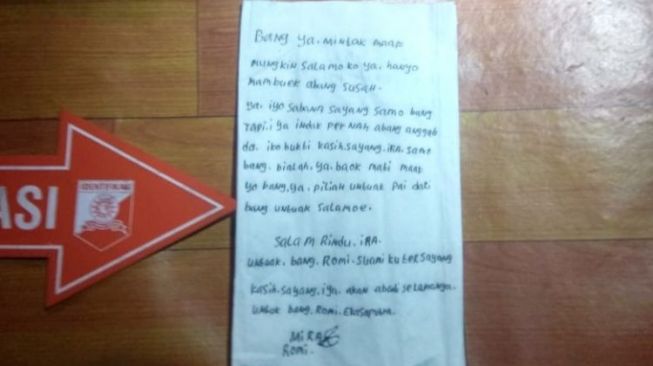 ASI
IDENTIFIKASI
BANG YA. MINTAK MAAP
MUNGKIN SALAMO KO YA. HANYO
MAMBUEK ABANG SUSAH.
YA. IYO SABANA SAYANG SAMO BANG
TAPI. I YA INDAK PERNAH ABANG ANGGAB
DO. IKO BUKTI KASIH. SAYANG. IRA. SAMO
BANG. BIALAH. YA. BAOK MATI MAAP
YO BANG. YA. PILIAH UNTUAK PAI DARI
BANG UNTUAK SALAMOE.
SALAM RINDU. IRA.
UNTUAK. BANG. ROMI. SUAMI KU TERSAYANG
KASIH. SAYANG. IYA. AKAN ABADI SELAMANYA.
UNTUK BANG. ROMI. EKASAPUTRA.
MIRA
ROMI.